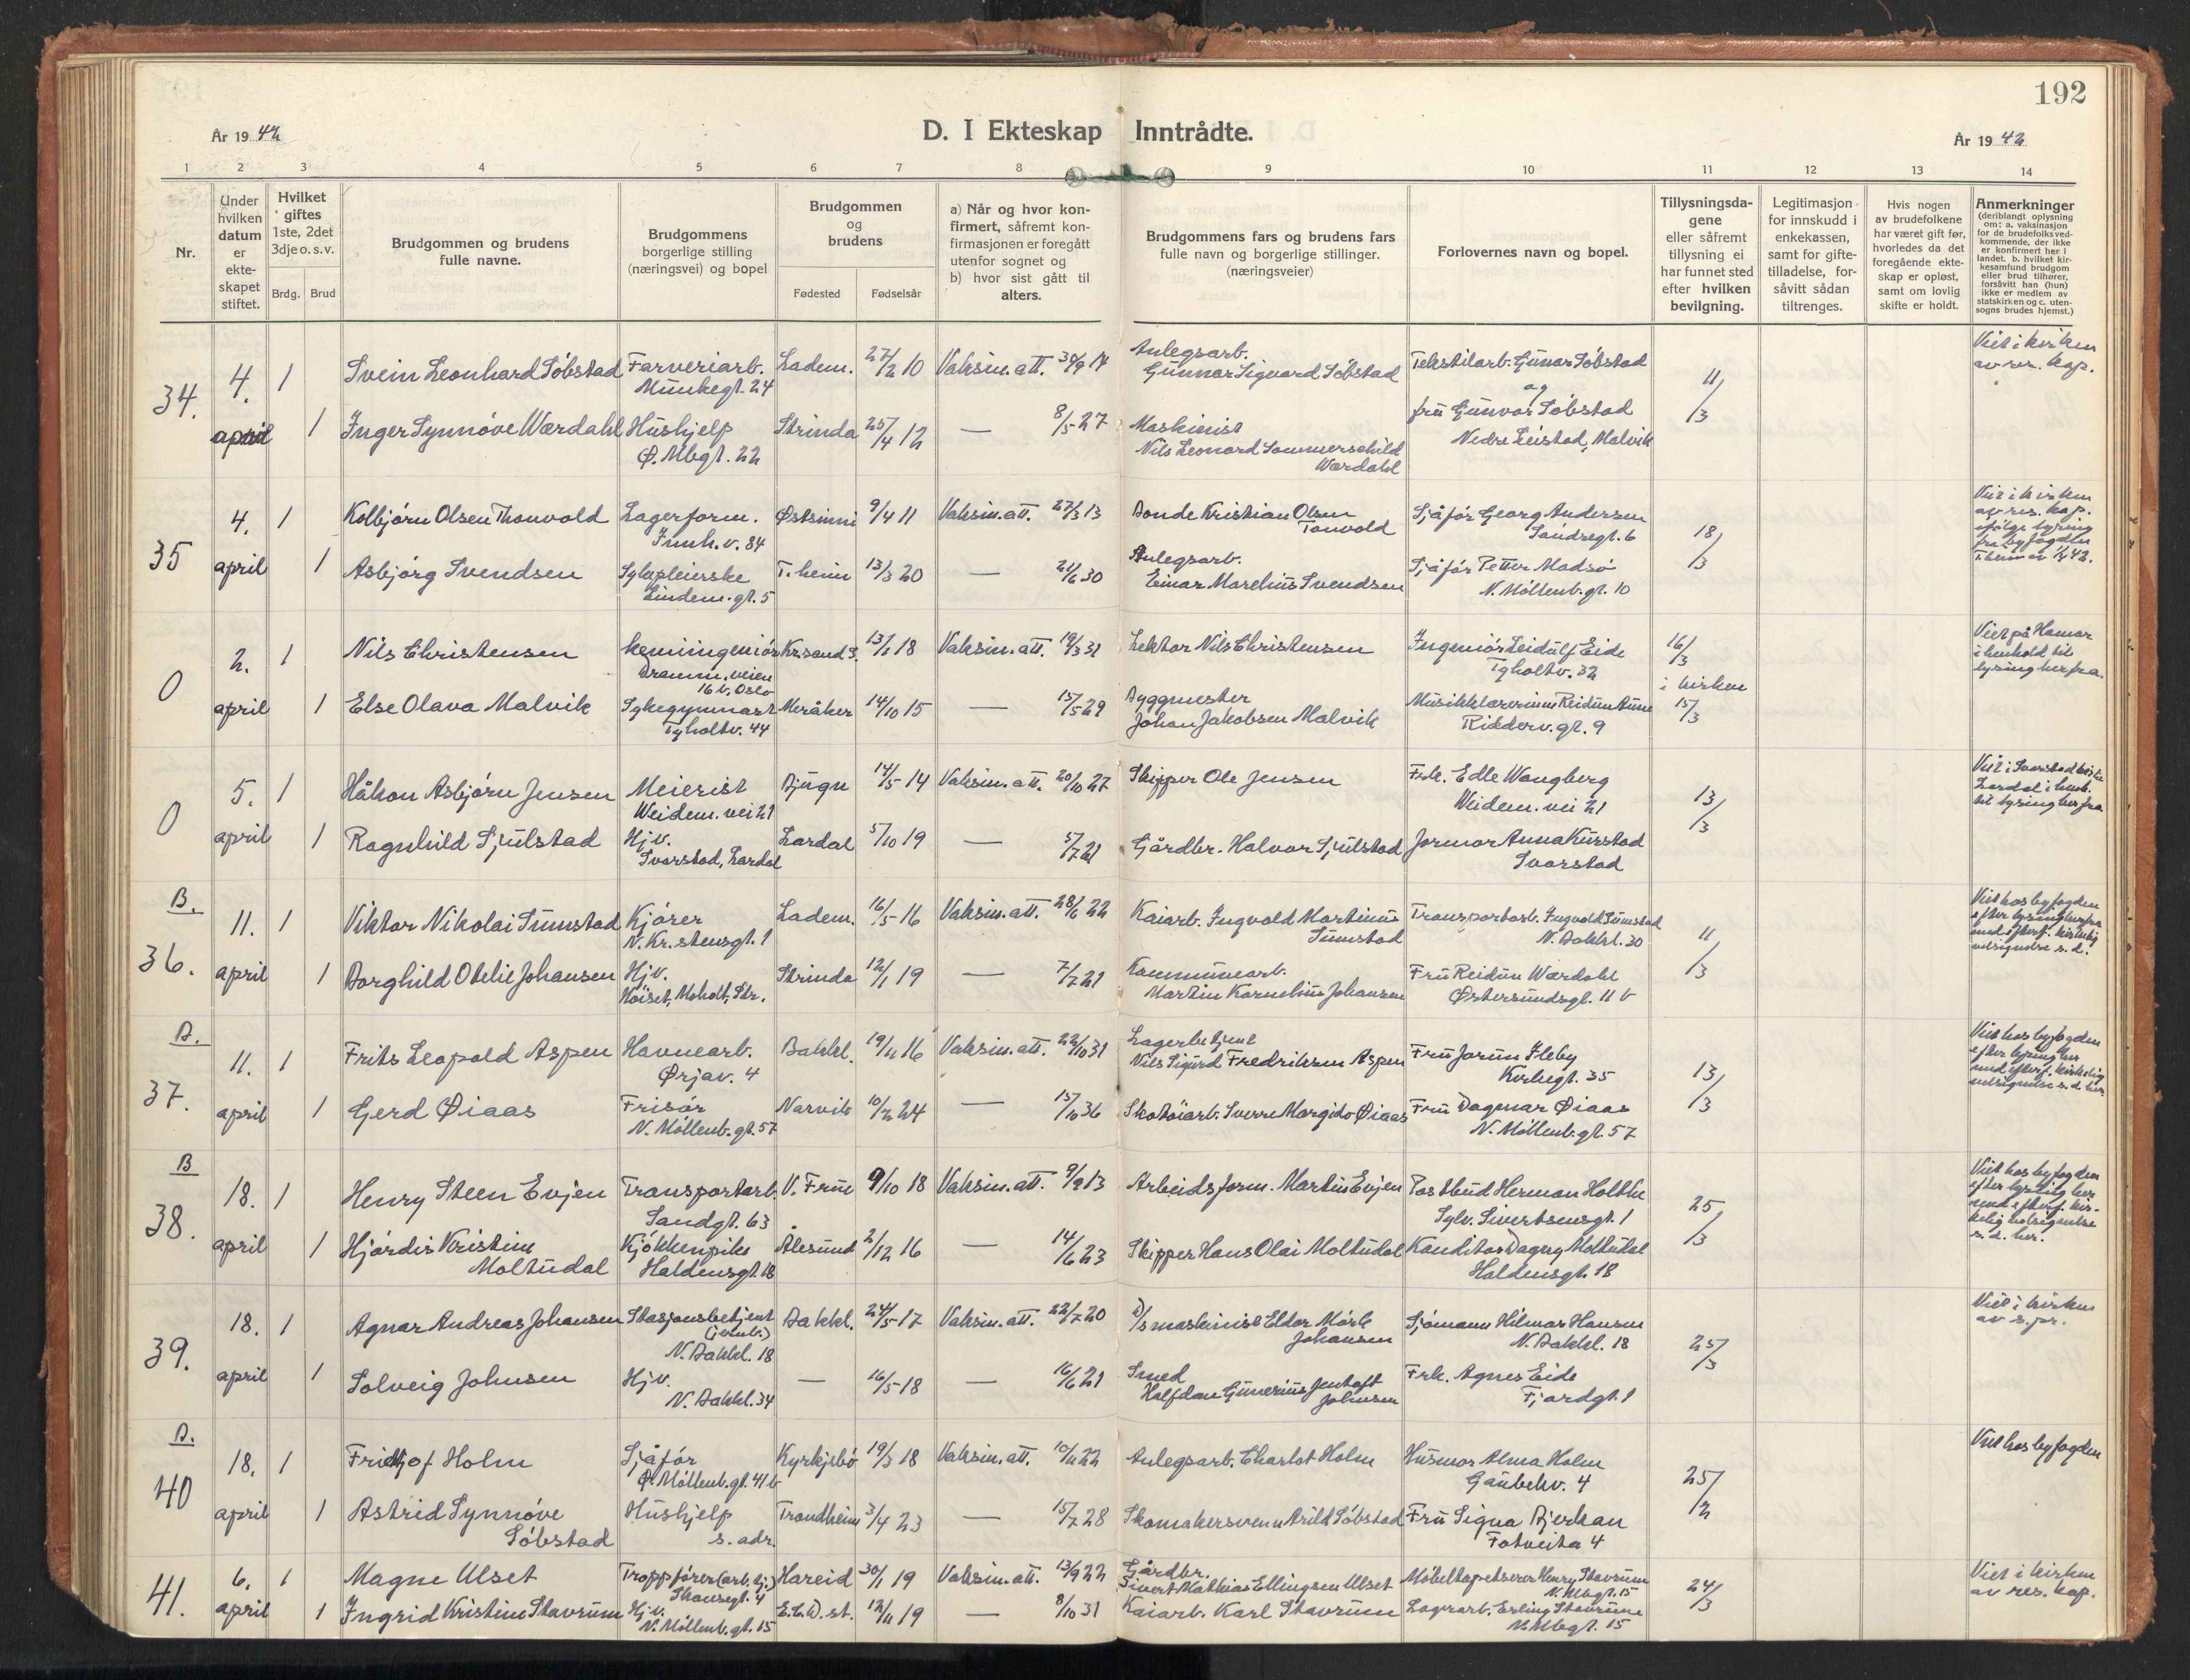 192
År 1942
D. I Ekteskap Inntrådte.
År 1942
1 2 3 4 5 6 7 8 9 10 11 12 13 14
Nr.
Under hvilken datum er ekteskapet stiftet.
Hvilket giftes 1ste, 2det 3dje o. s. v.
Brdg. Brud
Brudgommen og brudens fulle navne.
Brudgommens borgerlige stilling (næringsvei) og bopel
Brudgommen og brudens
Fødested Fødselsår
a) Når og hvor konfirmert, såfremt konfirmasjonen er foregått utenfor sognet og
b) hvor sist gått til alters.
Brudgommens fars og brudens fars fulle navn og borgerlige stillinger. (næringsveier)
Forlovernes navn og bopel.
Tillysningsdagene eller såfremt tillysning ei har funnet sted efter hvilken bevilgning.
Legitimasjon for innskudd i enkekassen, samt for giftetilladelse, forsåvitt sådan tiltrenges.
Hvis nogen av brudefolkene har været gift før, hvorledes da det foregående ekteskap er opløst, samt om lovlig skifte er holdt.
Anmerkninger (deriblandt oplysning om: a. vaksinasjon for de brudefolks vedkommende, der ikke er konfirmert her i landet. b. hvilket kirkesamfund brudgom eller brud tilhører, forsåvitt han (hun) ikke er medlem av statskirken og c. utensogns brudes hjemst.)
34. 4. april 1 Svein Leonhard Søbstad Farveriarb. Munkegt. 24 Ladem. 27/2 10 Vaksin.att. 30/9 14 Anlegsarb. Gunnar Sigvard Søbstad Tekstilarb. Gunnar Søbstad og 11/3 Viet i kirken av res. kap.
1 Inger Synnøve Wærdahl Hushjelp Ø. Mbgt. 22 Strinda 25/4 12 — 8/5 27 Maskinist Nils Leonard Sommerschild Wærdahl fru Gunvor Søbstad Nedre Leistad, Malvik
35 4. april 1 Kolbjørn Olsen Thonvold Lagerform. Innh.v. 84 Østsinni 9/4 11 Vaksin.att. 27/3 13 Bonde Kristian Olsen Tonvold Sjåfør Georg Andersen Søndregt. 6 18/3 Viet i kirken av res. kap. ifølge lysing fra byfogden T.heim
1 Asbjørg Svendsen Sykepleierske Lindem. gt. 5 T.heim 13/3 20 — 21/6 30 Anlegsarb. Einar Marelius Svendsen Sjåfør Petter Madsø N. Møllenb. gt. 10
0 2. april 1 Nils Christensen kemiingeniør Dramm. veien 16 b, Oslo Kr.sand S. 13/1 18 Vaksin.att. 19/3 31 Lektor Nils Christensen Ingeniør Leidulf Eide Tyholtv. 32 16/3 i kirken Viet på Hamar i henhold til lysing herfra.
1 Else Olava Malvik Sykegymnast Tyholtv. 44 Meråker 14/10 15 — 15/5 29 Byggmester Johan Jakobsen Malvik Musikklærerinne Reidun Aune Ridderv. gt. 9 15/3
0 5. april 1 Håkon Asbjørn Jensen Meierist Weidem. vei 21 Bjugn 14/5 14 Vaksin.att. 20/10 27 Skipper Ole Jensen Frk. Edle Wangberg Weidem. vei 21 13/3 Viet i Svarstad kirke Lardal i henh. til lysing herfra
1 Ragnhild Sjulstad Hjv. Svarstad, Lardal Lardal 5/10 19 — 5/7 21 Gårdbr. Halvor Sjulstad Jormor Anna Svarstad
B. 36. 11. april 1 Viktor Nikolai Sumstad Kjører N. Kr.stensgt. 1 Ladem. 16/5 16 Vaksin.att. 28/6 22 Kaiarb. Ingvald Martinus Sumstad Transportarb. Ingvald Sumstad N. Bakkl. 30 11/3 Viet hos byfogden efter lysing herfra med efterf. kirkelig velsignelse s.d.
1 Borghild Otelie Johansen Hjv. Moholt, Str. Strinda 12/1 19 — 7/7 21 Kommunearb. Martin Kornelius Johansen Fru Reidun Wærdahl Østersundsgt. 11 b
B. 37. 11. april 1 Frits Leopold Aspen Havnearb. Ørjav. 4 Bakkl. 19/4 16 Vaksin.att. 22/10 31 Lagerbetjent Nils Sigurd Fredriksen Aspen Fru Jorun Ileby Kirkegt. 35 13/3 Viet hos byfogden efter lysing her med efterf. kirkelig velsignelse s.d. her
1 Gerd Øiaas Frisør N. Møllenb. gt. 57 Narvik 10/2 24 — 15/10 36 Skotøiarb. Sverre Margido Øiaas Fru Dagmar Øiaas N. Møllenb. gt. 57
B 38. 18. april 1 Henry Steen Evjen Transportarb. Sandgt. 63 V. Frue 9/10 18 Vaksin.att. 9/2 13 Arbeidsform. Martin Evjen Postbud Herman Holthe Sylv. Sivertsensgt. 1 25/3 Viet hos byfogden efter lysing her med efterf. kirkelig velsignelse s.d. her.
1 Hjørdis Kristine Moltudal Kjøkkenpike Haldensgt. 18 Ålesund 2/12 16 — 14/6 23 Skipper Hans Olai Moltudal Konditor Dagny Moltudal Haldensgt. 18
39. 18. april 1 Agnar Andreas Johansen Stasjonsbetjent (jernb.) N. Bakkl. 18 Bakkl. 24/5 17 Vaksin.att. 22/7 20 D/s maskinist Eldor Mørk Johansen Sjømann Hilmar Hansen N. Bakkl. 18 25/3 Viet i kirken av s.pr.
1 Solveig Johnsen Hjv. N. Bakkl. 34 — 16/5 18 — 16/6 21 Smed Halfdan Gunerius Jentoft Johnsen Frk. Agnes Eide Fjordgt. 1
B. 40 18. april 1 Fridtjof Holm Sjåfør Ø. Møllenb. gt. 41 b Kyrkjebø 19/3 18 Vaksin.att. 10/11 22 Anlegsarb. Charlot Holm Husmor Alma Holm Gaubekv. 4 25/2 Viet hos byfogden
1 Astrid Synnøve Søbstad Hushjelp s. adr. Trondheim 3/4 23 — 15/7 28 Skomakersvenn Arild Søbstad Fru Signa Bjerkan Fotveita 4
41. 6. april 1 Magne Ulset Troppfører (arb.tj.) Hareid 30/1 19 Vaksin.att. 13/9 22 Gårdbr. Sivert Mathias Ellingsen Ulset Møbeltapetserer Henry Stavrum N. Mbgt. 15 24/3 Viet i kirken av res. kap.
1 Ingrid Kristine Stavrum Hjv. N. Møllenb. gt. 15 E.C.D. st. 12/11 19 — 8/10 31 Kaiarb. Karl Stavrum Lagerarb. Erling Stavrum N. Mbgt. 15